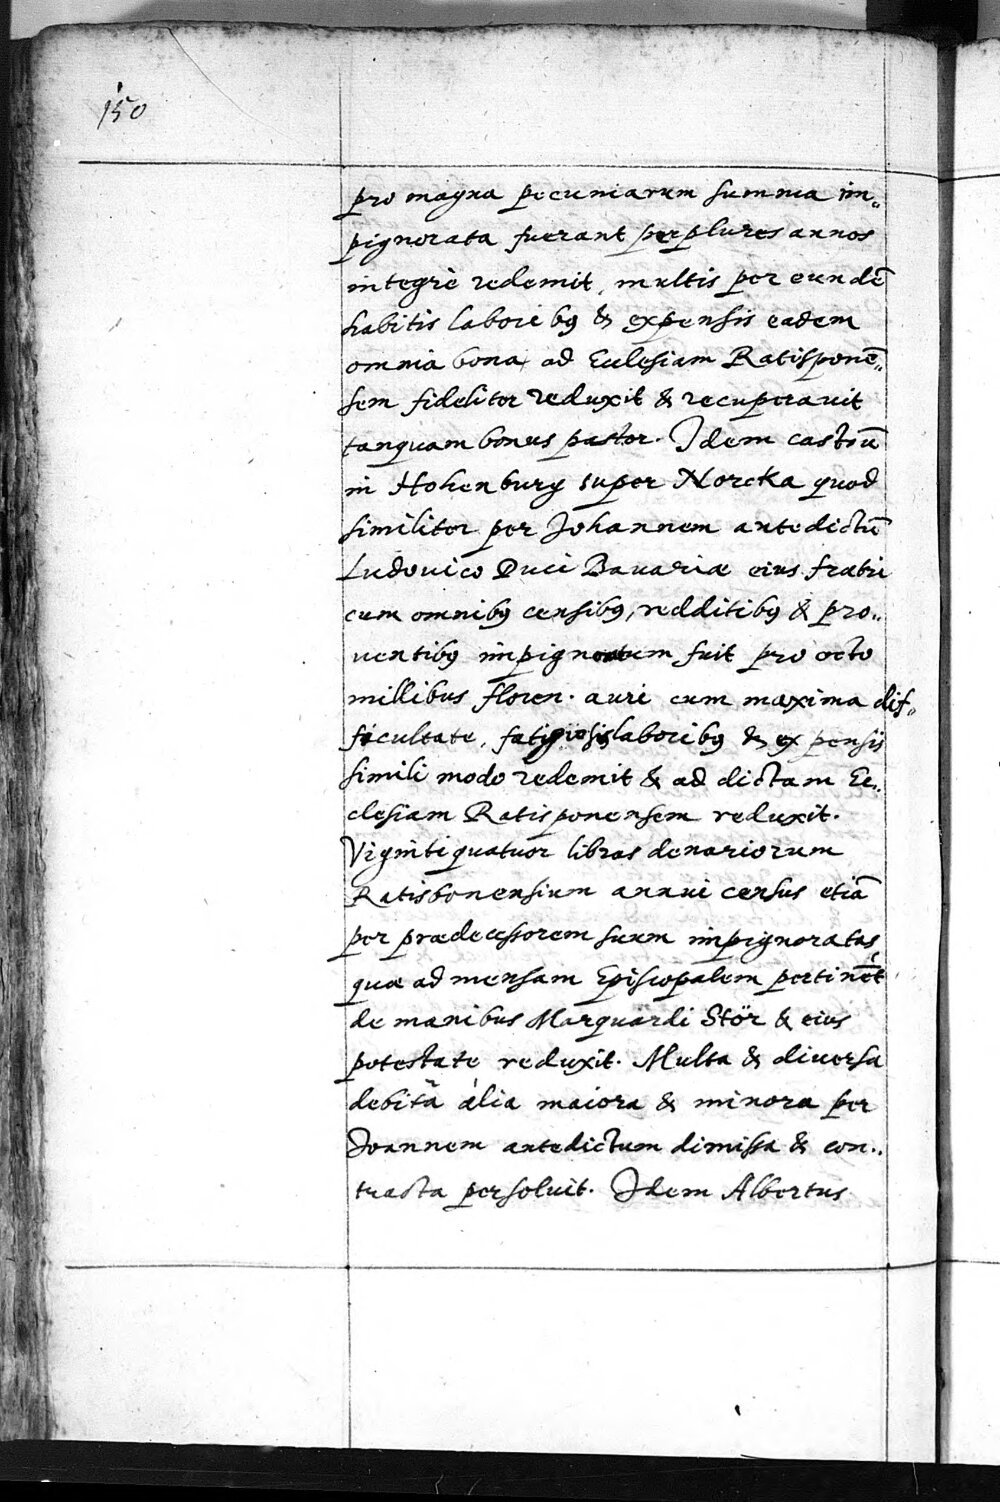 150
pro magna pecuniarum summa im„
pignorata fuerant per plures annos
integrè redemit, multis per eundē
habitis laboribꝰ & expensis eadem
omnia bona, ad Ecclesiam Ratisponē„
sem fideliter reduxit & recuperauit
tanquam bonus pastor. Idem castrū
in Hohenburg super Norcka quod
similiter per Johannem antedictū
Ludouico Duci Bauariæ eius fratri
cum omnibꝰ censibꝰ, redditibꝰ & pro„
uentibꝰ impignoratum fuit pro octo
millibus floren. auri cum maxima dif„
ficultate, fatigiosis laboribꝰ & expensis
simili modo redemit & ad dictam Ec„
clesiam Ratisponensem reduxit.
Viginti quatuor libras denariorum
Ratisbonensium annui census etiā
per prædecessorem suum impignoratas,
quæ ad mensam Episcopalem pertinēt
de manibus Marquardi Stör & eius
potestate reduxit. Multa & diuersa
debita alia maiora & minora per
Joannem antedictum dimissa & con„
tracta persoluit. Idem Albertus